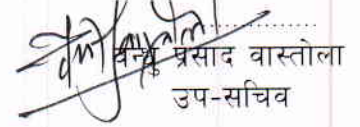 बन्धु प्रसाद वास्तोला
उप-सचिव